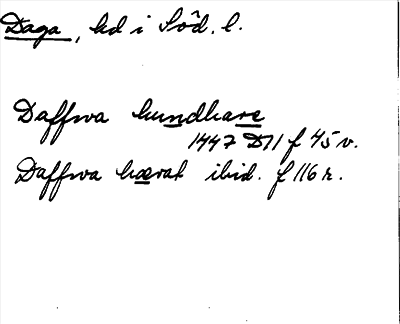 Daga, hd i Söd. l.
Daffwa hundhare
1447 D11 f 45 v.
Daffwa hærat ibid. f 116 r.